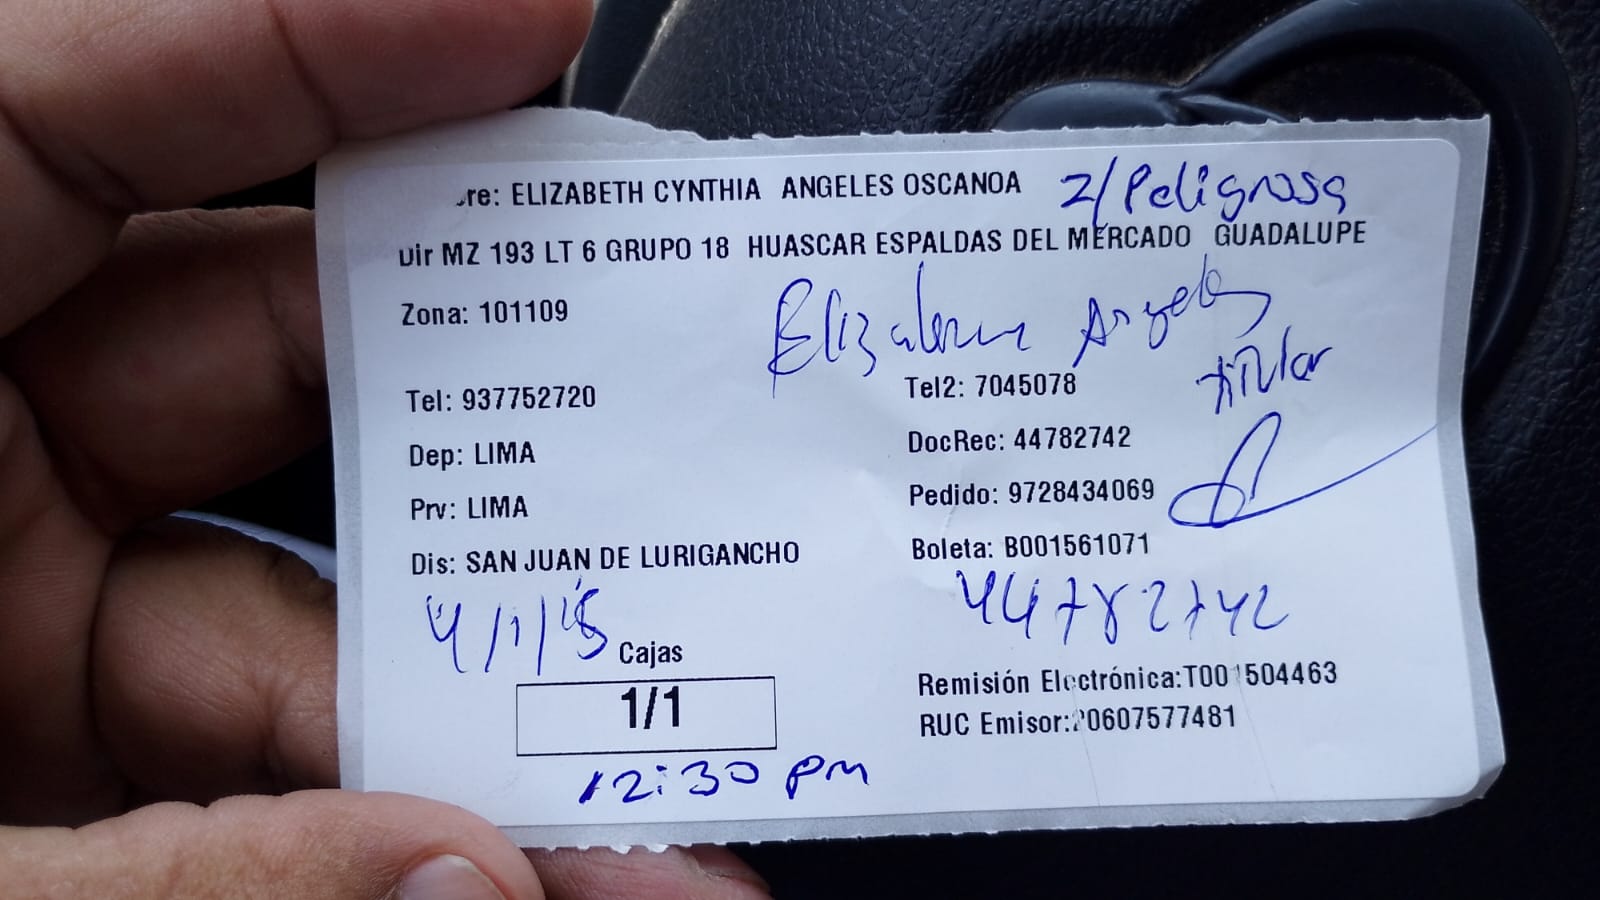 re: ELIZABETH CYNTHIA ANGELES OSCANOA Z/Peligrosa
Dir MZ 193 LT 6 GRUPO 18 HUASCAR ESPALDAS DEL MERCADO GUADALUPE
Zona: 101109
Angeles
titular
Tel: 937752720 Tel2: 7045078
Dep: LIMA DocRec: 44782742
Prv: LIMA Pedido: 9728434069
Dis: SAN JUAN DE LURIGANCHO Boleta: B001561071
44782742
Cajas
1/1
Remisión Electrónica:T001504463
RUC Emisor:20607577481
12:30 pm